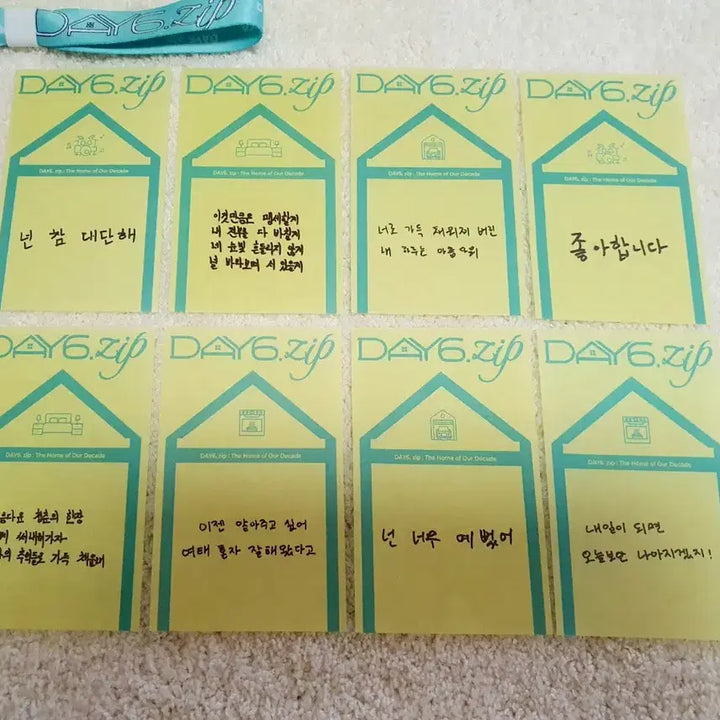 DAY6.zip
DAY6.zip
DAY6. zip : The Home of Our Decade
넌 참 대단해
DAY6.zip
DAY6. zip : The Home of Our Decade
이것만큼은 맹세할게
내 전부를 다 바칠게
네 눈빛 흔들리지 않게
널 바라보며 서 있을게
DAY6.zip
DAY6. zip : The Home of Our Decade
너로 가득 채워져 버린
내 하루는 아름다워
DAY6.zip
DAY6. zip : The Home of Our Decade
좋아합니다
DAY6.zip
DAY6. zip : The Home of Our Decade
청춘의 한장
써내려가자
추억들로 가득 채울래
DAY6.zip
DAY6. zip : The Home of Our Decade
이젠 알아주고 싶어
여태 혼자 잘해왔다고
DAY6.zip
DAY6. zip : The Home of Our Decade
넌 너무 예뻤어
DAY6.zip
DAY6. zip : The Home of Our Decade
내일이 되면
오늘보단 나아지겠지!